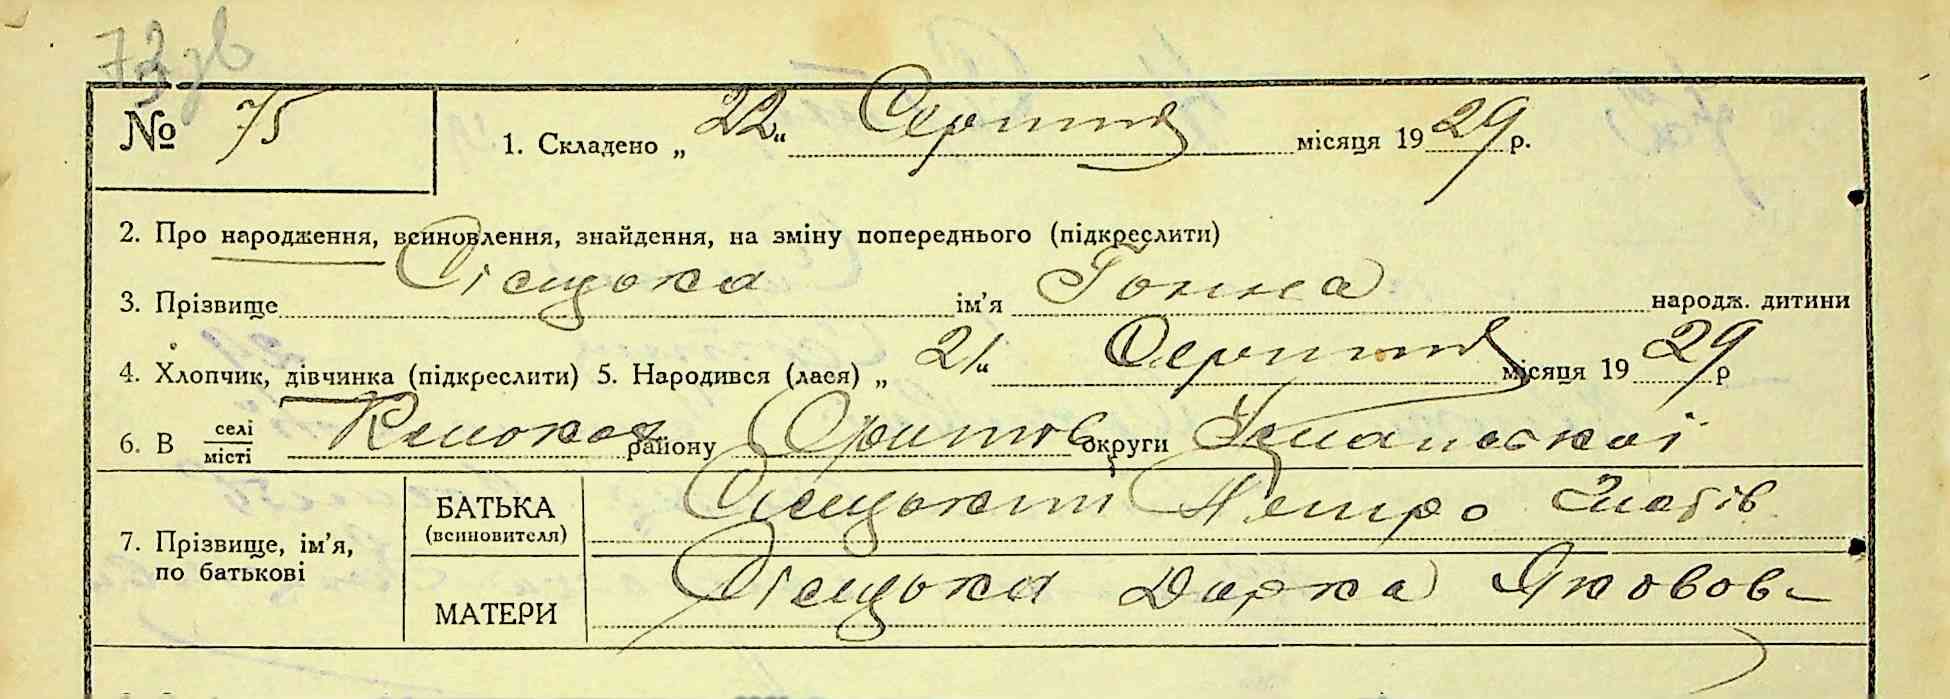 73
№ 75 1. Складено „ 22 “ Серпня місяця 1929 р.
2. Про народження, всиновлення, знайдення, на зміну попереднього (підкреслити)
3. Прізвище ім’я Ганна народж. дитини
4. Хлопчик, дівчинка (підкреслити) 5. Народився (лася) „ 21 “ Серпня місяця 1929 р
6. В селі місті району округи Уманської
7. Прізвище, ім’я, по батькові
БАТЬКА (всиновителя) Петро
МАТЕРИ Дарка Яковов